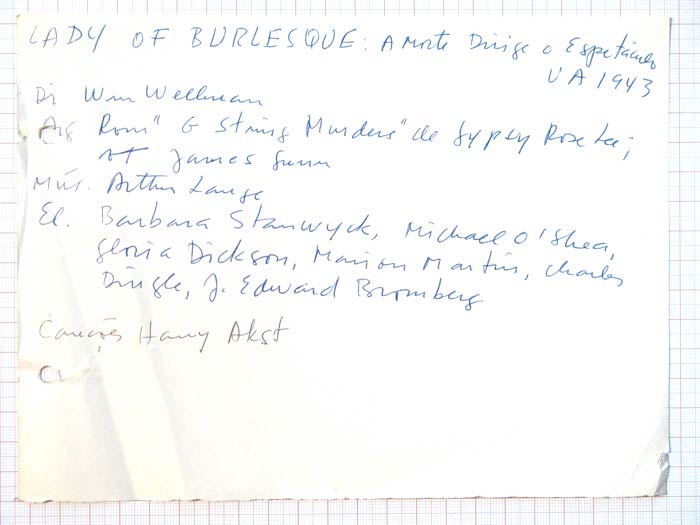 LADY OF BURLESQUE: A Morte Dirige o Espetáculo
UA 1943
Di Wm Wellman
Arg Rom "G String Murders" de Gypsy Rose Lee;
AT James Gunn
Mús. Arthur Lange
El. Barbara Stanwyck, Michael O'Shea,
Gloria Dickson, Marion Martin, Charles
Dingle, J. Edward Bromberg
Canções Harry Akst